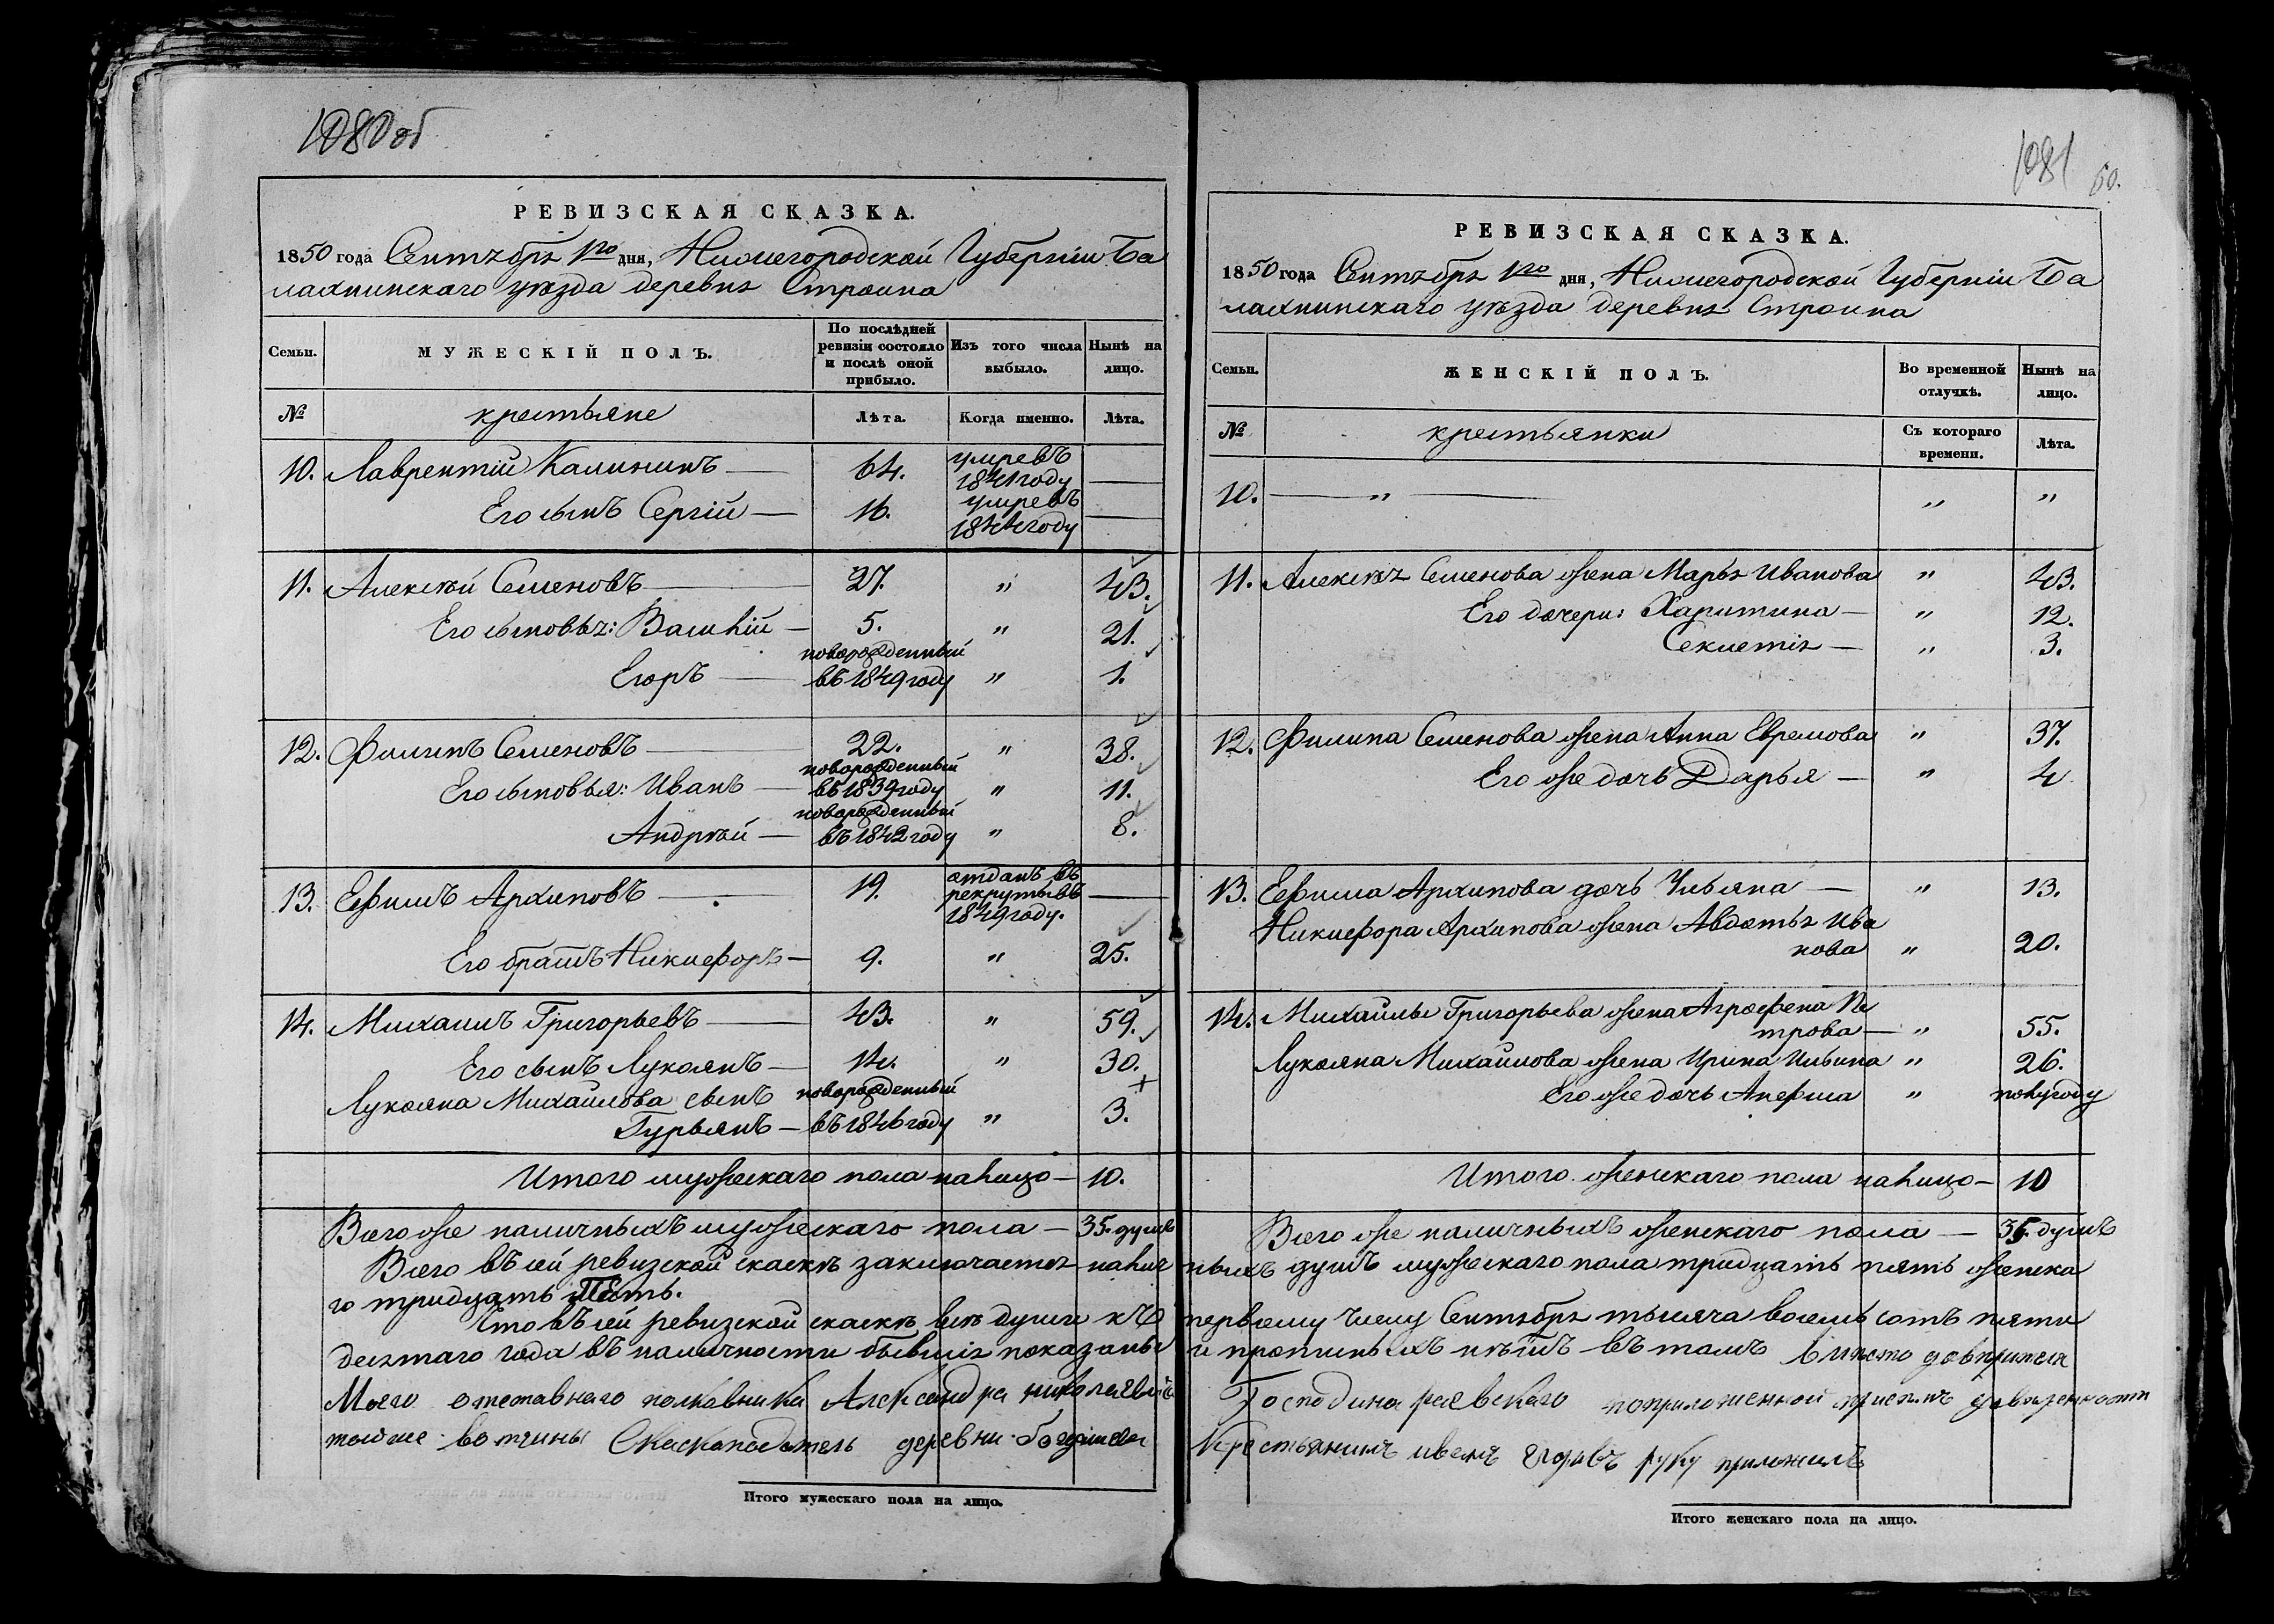 1080 об
РЕВИЗСКАЯ СКАЗКА.
1850 года Сентября 1го дня, Нижегородской Губерніи Ба
лахнинскаго уѣзда деревня Строина
Семьи.
МУЖЕСКІЙ ПОЛЪ.
По послѣдней ревизіи состояло и послѣ оной прибыло.
Изъ того числа выбыло.
Нынѣ на лицо.
№ крестьяне Лѣта. Когда именно. Лѣта.
10. Лаврентій Калининъ — 64. умревъ 1841 году —
Его сынъ Сергій — 16. умревъ 1844 году —
11. Алексѣй Семеновъ — 27. " 43.
Его сыновья: Василій — 5. " 21.
Егоръ — новорожденный въ 1849 году " 1.
12. Филипъ Семеновъ — 22. " 38.
Его сыновья: Иванъ — новорожденный въ 1839 году " 11.
Андрей — новорожденный въ 1842 году " 8.
13. Ефимъ Архиповъ — 19. отданъ въ рекруты въ 1849 году. —
Его братъ Никифоръ — 9. " 25.
14. Михаилъ Григорьевъ — 43. " 59.
Его сынъ Лукоянъ — 14. " 30.
Лукояна Михайлова сынъ
Гурьянъ — новорожденный въ 1846 году " 3.
Итого мужескаго пола на лицо — 10.
Всего же наличныхъ мужескаго пола — 35. душъ
Всего въ сей ревизской скаскѣ заключается налич
го тридцать пять.
Что въ сей ревизской скаскѣ всѣ души къ
десятаго года въ наличности бывшія показаны
Моего отставнаго полковника Александра николаевича
тойже вотчины Скаскоподатель деревни
Итого мужескаго пола на лицо.
1081
60.
РЕВИЗСКАЯ СКАЗКА.
1850 года Сентября 1го дня, Нижегородской Губерніи Ба
лахнинскаго уѣзда деревня Строина
Семьи.
ЖЕНСКІЙ ПОЛЪ.
Во временной отлучкѣ.
Нынѣ на лицо.
№ крестьянки Съ котораго времени. Лѣта.
10. — " — " "
11. Алексѣя Семенова жена Марья Иванова " 43.
Его дочери: Харитина — " 12.
Секлетія — " 3.
12. Филипа Семенова жена Анна Ефремова " 37.
Его же дочь Дарья — " 4
13. Ефима Архипова дочь Ульяна — " 13.
Никифора Архипова жена Авдотья Ива
нова " 20.
14. Михайлы Григорьева жена Аграфена Пе
трова — " 55.
Лукояна Михайлова жена Ирина Ильина " 26.
Его же дочь Анфиса " полугоду
Итого женскаго пола на лицо — 10
Всего же наличныхъ женскаго пола — 35. душъ
ныхъ душъ мужескаго пола тридцать пять женска
первому числу Сентября тысяча восемь сотъ пяти
и прописныхъ нѣтъ въ томъ вместо доверителя
Господина раевскаго поприложенной присемъ доверенности
Крестьянинъ иванъ егоровъ руку приложилъ
Итого женскаго пола на лицо.